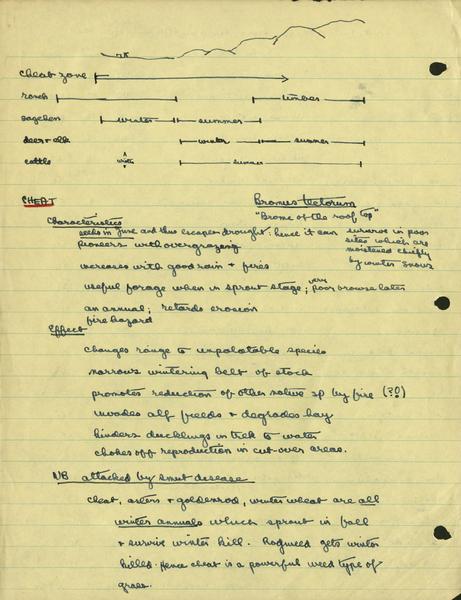 RR
cheat zone
ranch timber
sagehen winter summer
deer & elk winter summer
cattle winter summer
CHEAT Bromus tectorum
"Brome of the roof top"
Characteristics
seeds in June and thus escapes drought: hence it can survive in poor sites which are moistened chiefly by winter snows
pioneers with overgrazing
increases with good rain & fires
useful forage when in sprout stage; very poor browse later
an annual; retards erosion
fire hazard
Effect
changes range to unpalatable species
narrows wintering belt of stock
promotes reduction of other native sp by fire (??)
invades alf fields & degrades hay
hinders ducklings in trek to water
chokes off reproduction in cut-over areas.
NB attacked by smut disease
cheat, asters & goldenrod, winter wheat are all
winter annuals which sprout in fall
& survive winter kill. Ragweed gets winter
killed. Hence cheat is a powerful weed type of
grass.